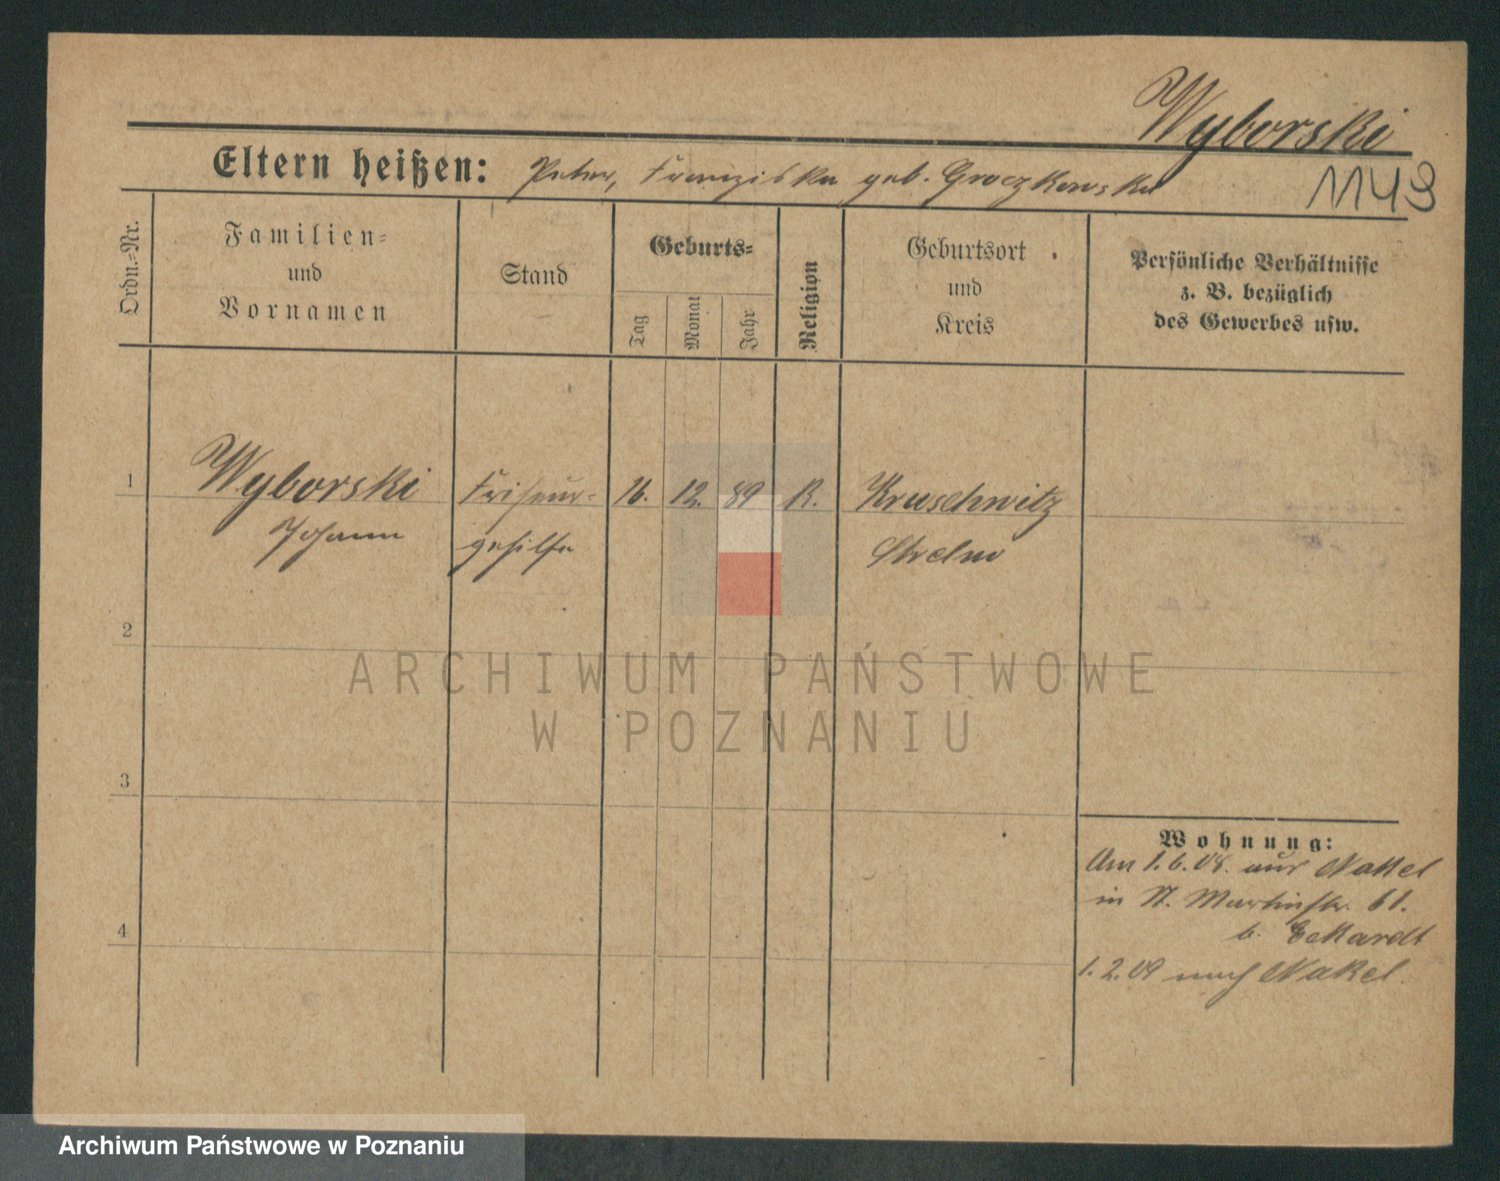 Wyborski
Eltern heißen: Peter, Franziska geb. Groczkowska
1149
Ordn.-Nr.
Familien-
und
Vornamen
Stand
Geburts-
Tag
Monat
Jahr
Religion
Geburtsort
und
Kreis
Persönliche Verhältnisse
z. B. bezüglich
des Gewerbes usw.
1
Wyborski Friseur- 16. 12. 89 K. Kruschwitz
Johann gehilfe Strelno
2
3
4
Wohnung:
Am 1.6.08. aus Nakel
in St. Martinstr. 61.
b. Eckardt
1.2.09 nach Nakel.
ARCHIWUM PAŃSTWOWE
W POZNANIU
Archiwum Państwowe w Poznaniu